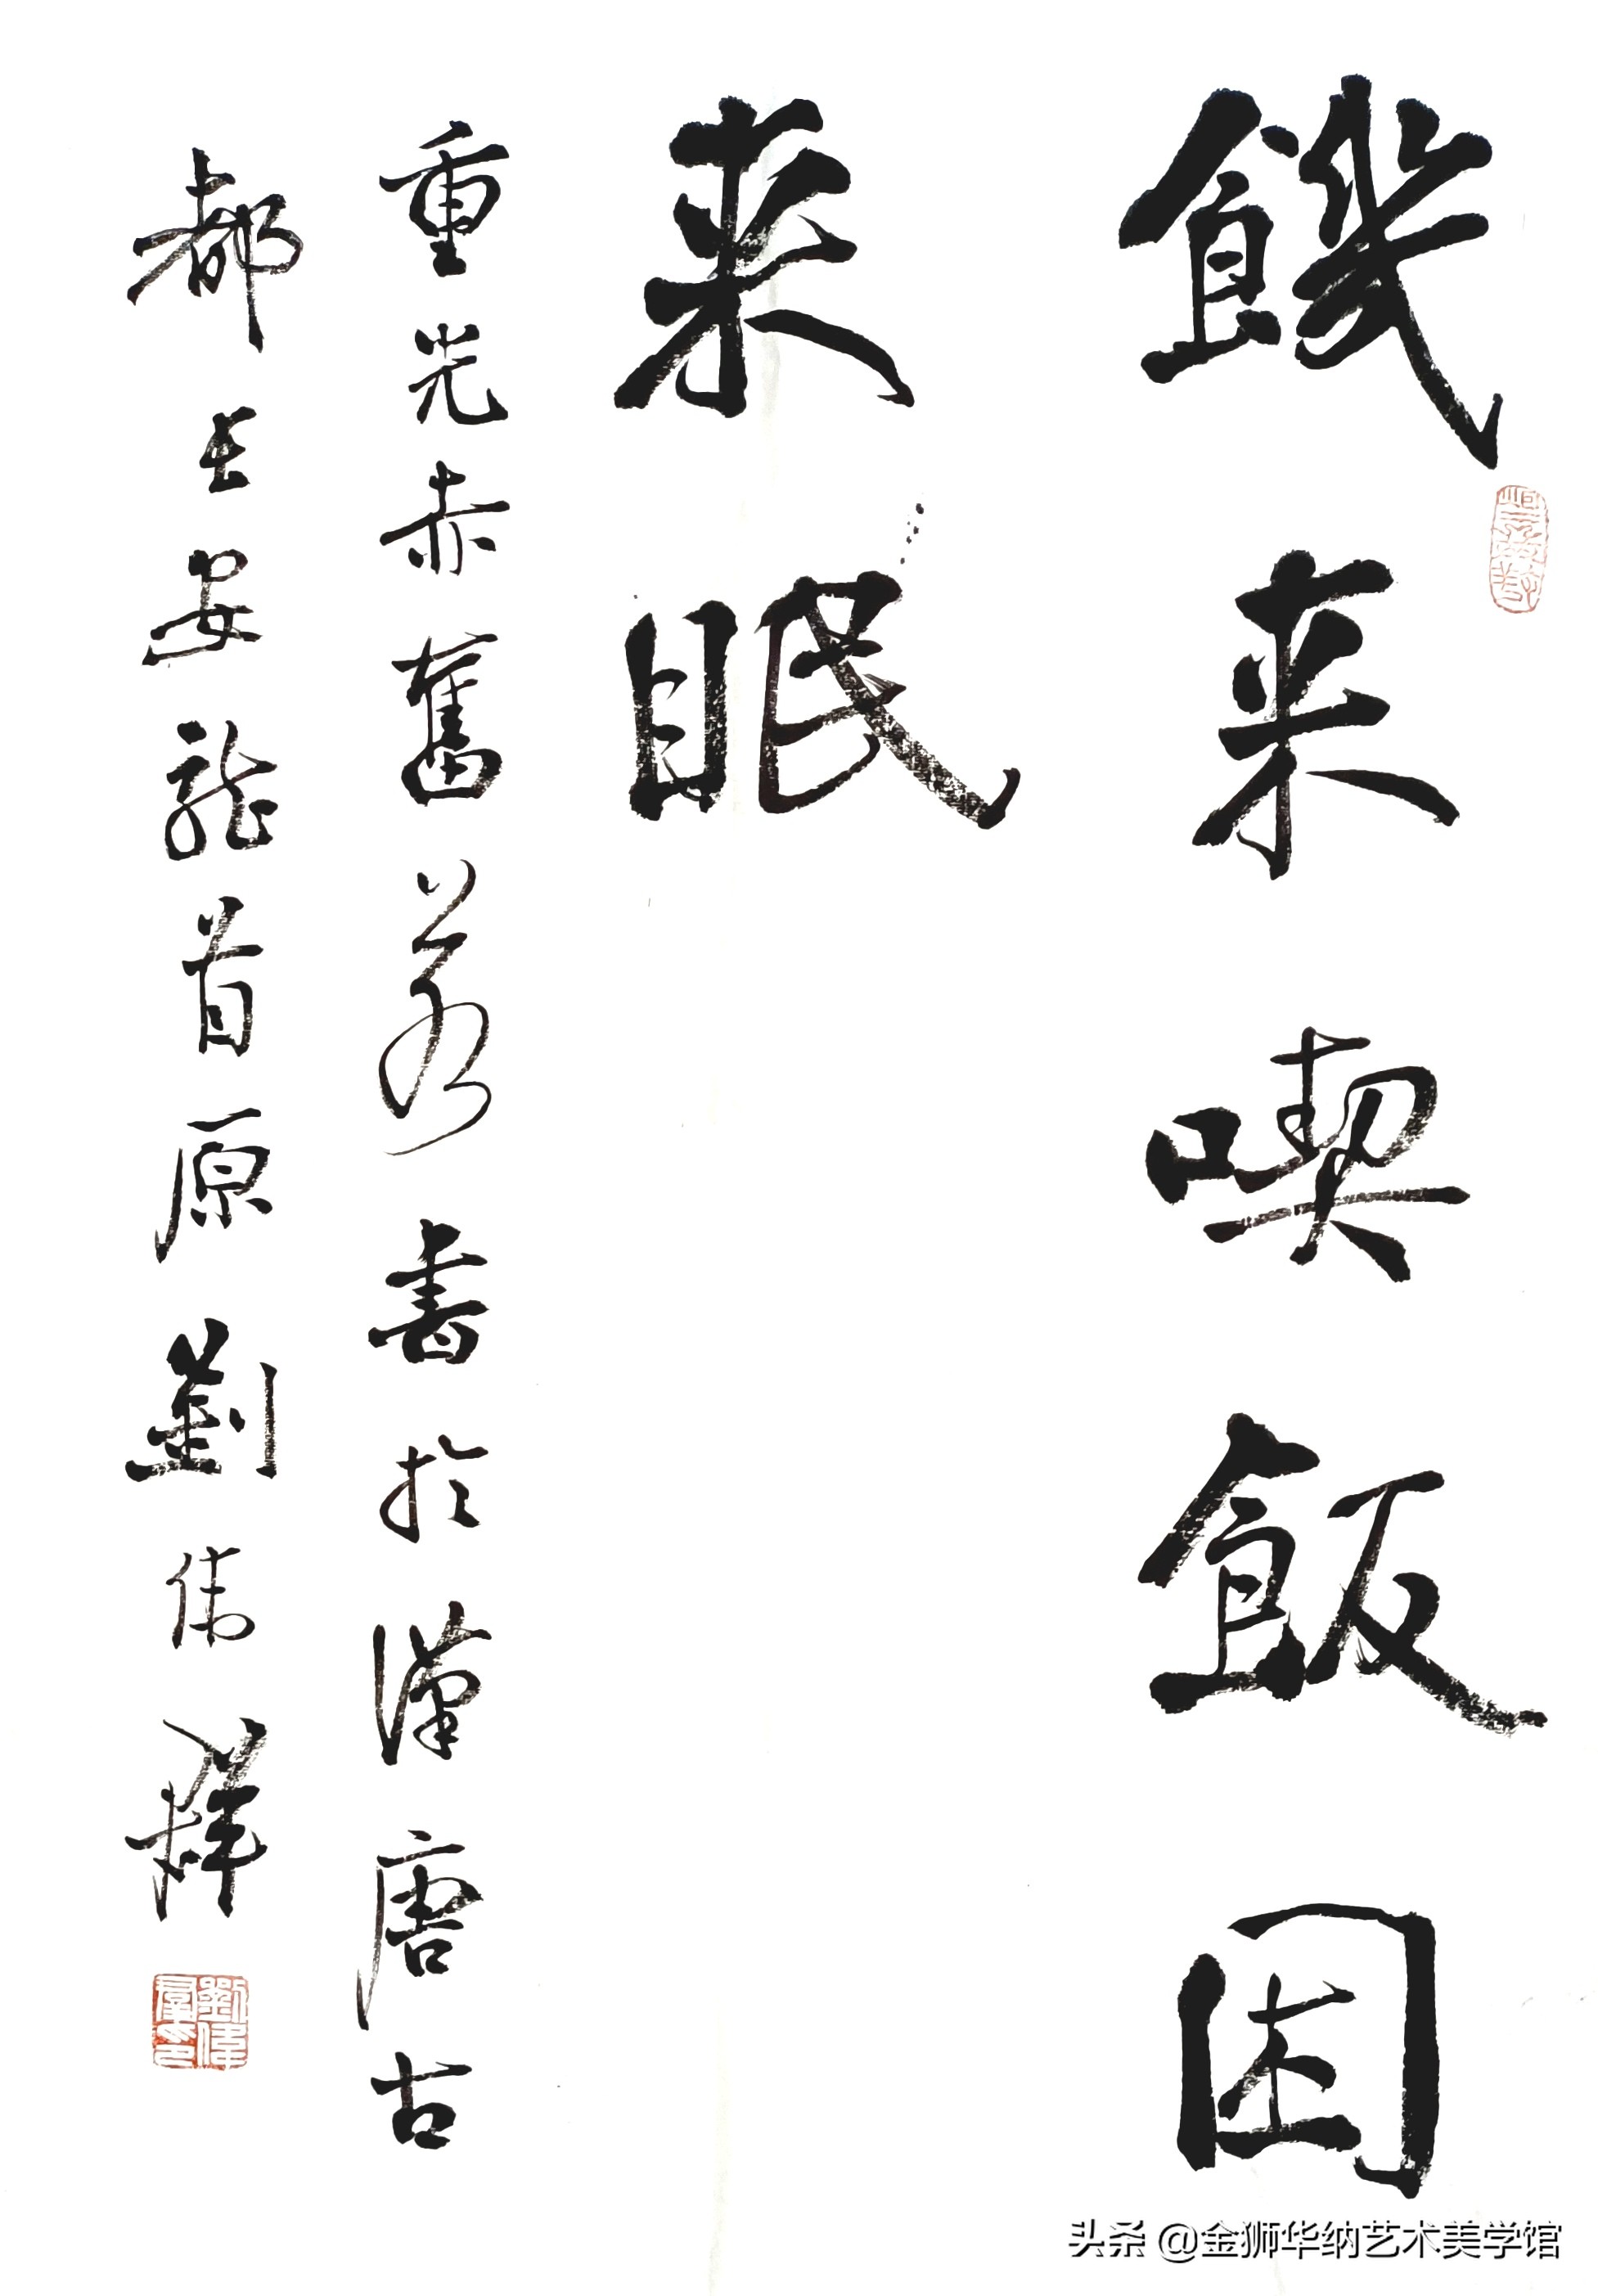 饑来喫飯困
来眠
重光赤奮若書於漢唐古
都長安龍首原劉偉祥
劉偉祥印
头条 @金狮华纳艺术美学馆